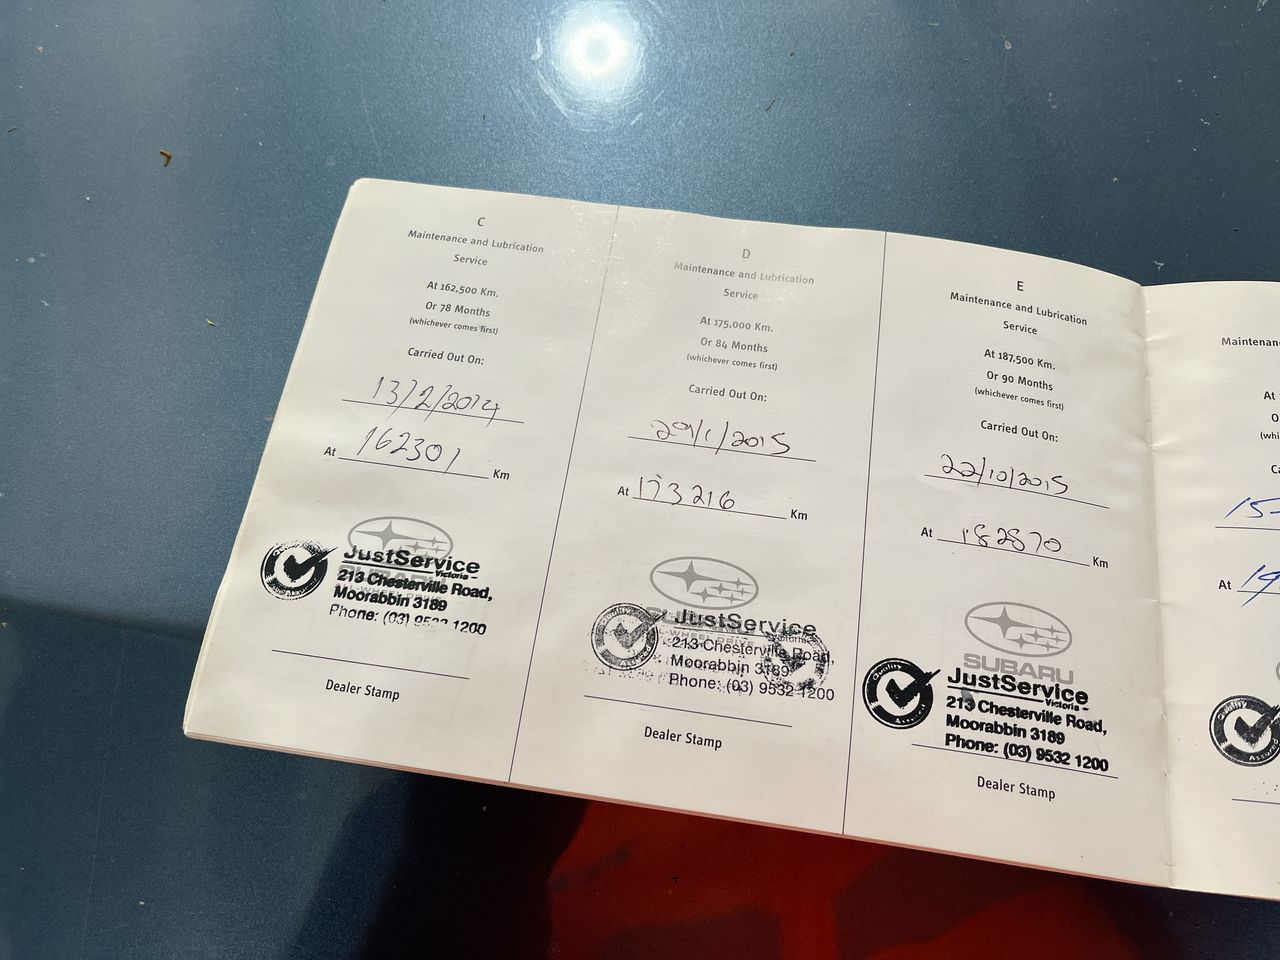 C
Maintenance and Lubrication
Service
At 162,500 Km.
Or 78 Months
(whichever comes first)
Carried Out On:
13/2/2014
At 162301 Km
SUBARU
JustService
Victoria
213 Chesterville Road,
Moorabbin 3189
Phone: (03) 9532 1200
Dealer Stamp
D
Maintenance and Lubrication
Service
At 175,000 Km.
Or 84 Months
(whichever comes first)
Carried Out On:
29/1/2015
At 173216 Km
SUBARU
JustService
Victoria
213 Chesterville Road,
Moorabbin 3189
Phone: (03) 9532 1200
Dealer Stamp
E
Maintenance and Lubrication
Service
At 187,500 Km.
Or 90 Months
(whichever comes first)
Carried Out On:
22/10/2015
At 182870 Km
SUBARU
Quality
Assured
JustService
- Victoria -
213 Chesterville Road,
Moorabbin 3189
Phone: (03) 9532 1200
Dealer Stamp
Maintenan
At
O
(whi
Ca
15-
At 19
Quality
Assured